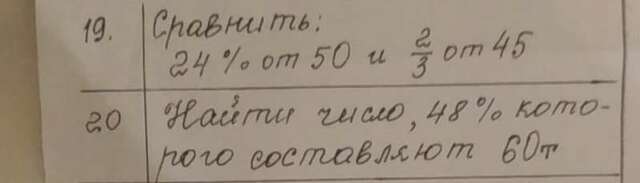 19. Сравнить:
24% от 50 и 2/3 от 45
20 Найти число, 48% кото-
рого составляют 60т